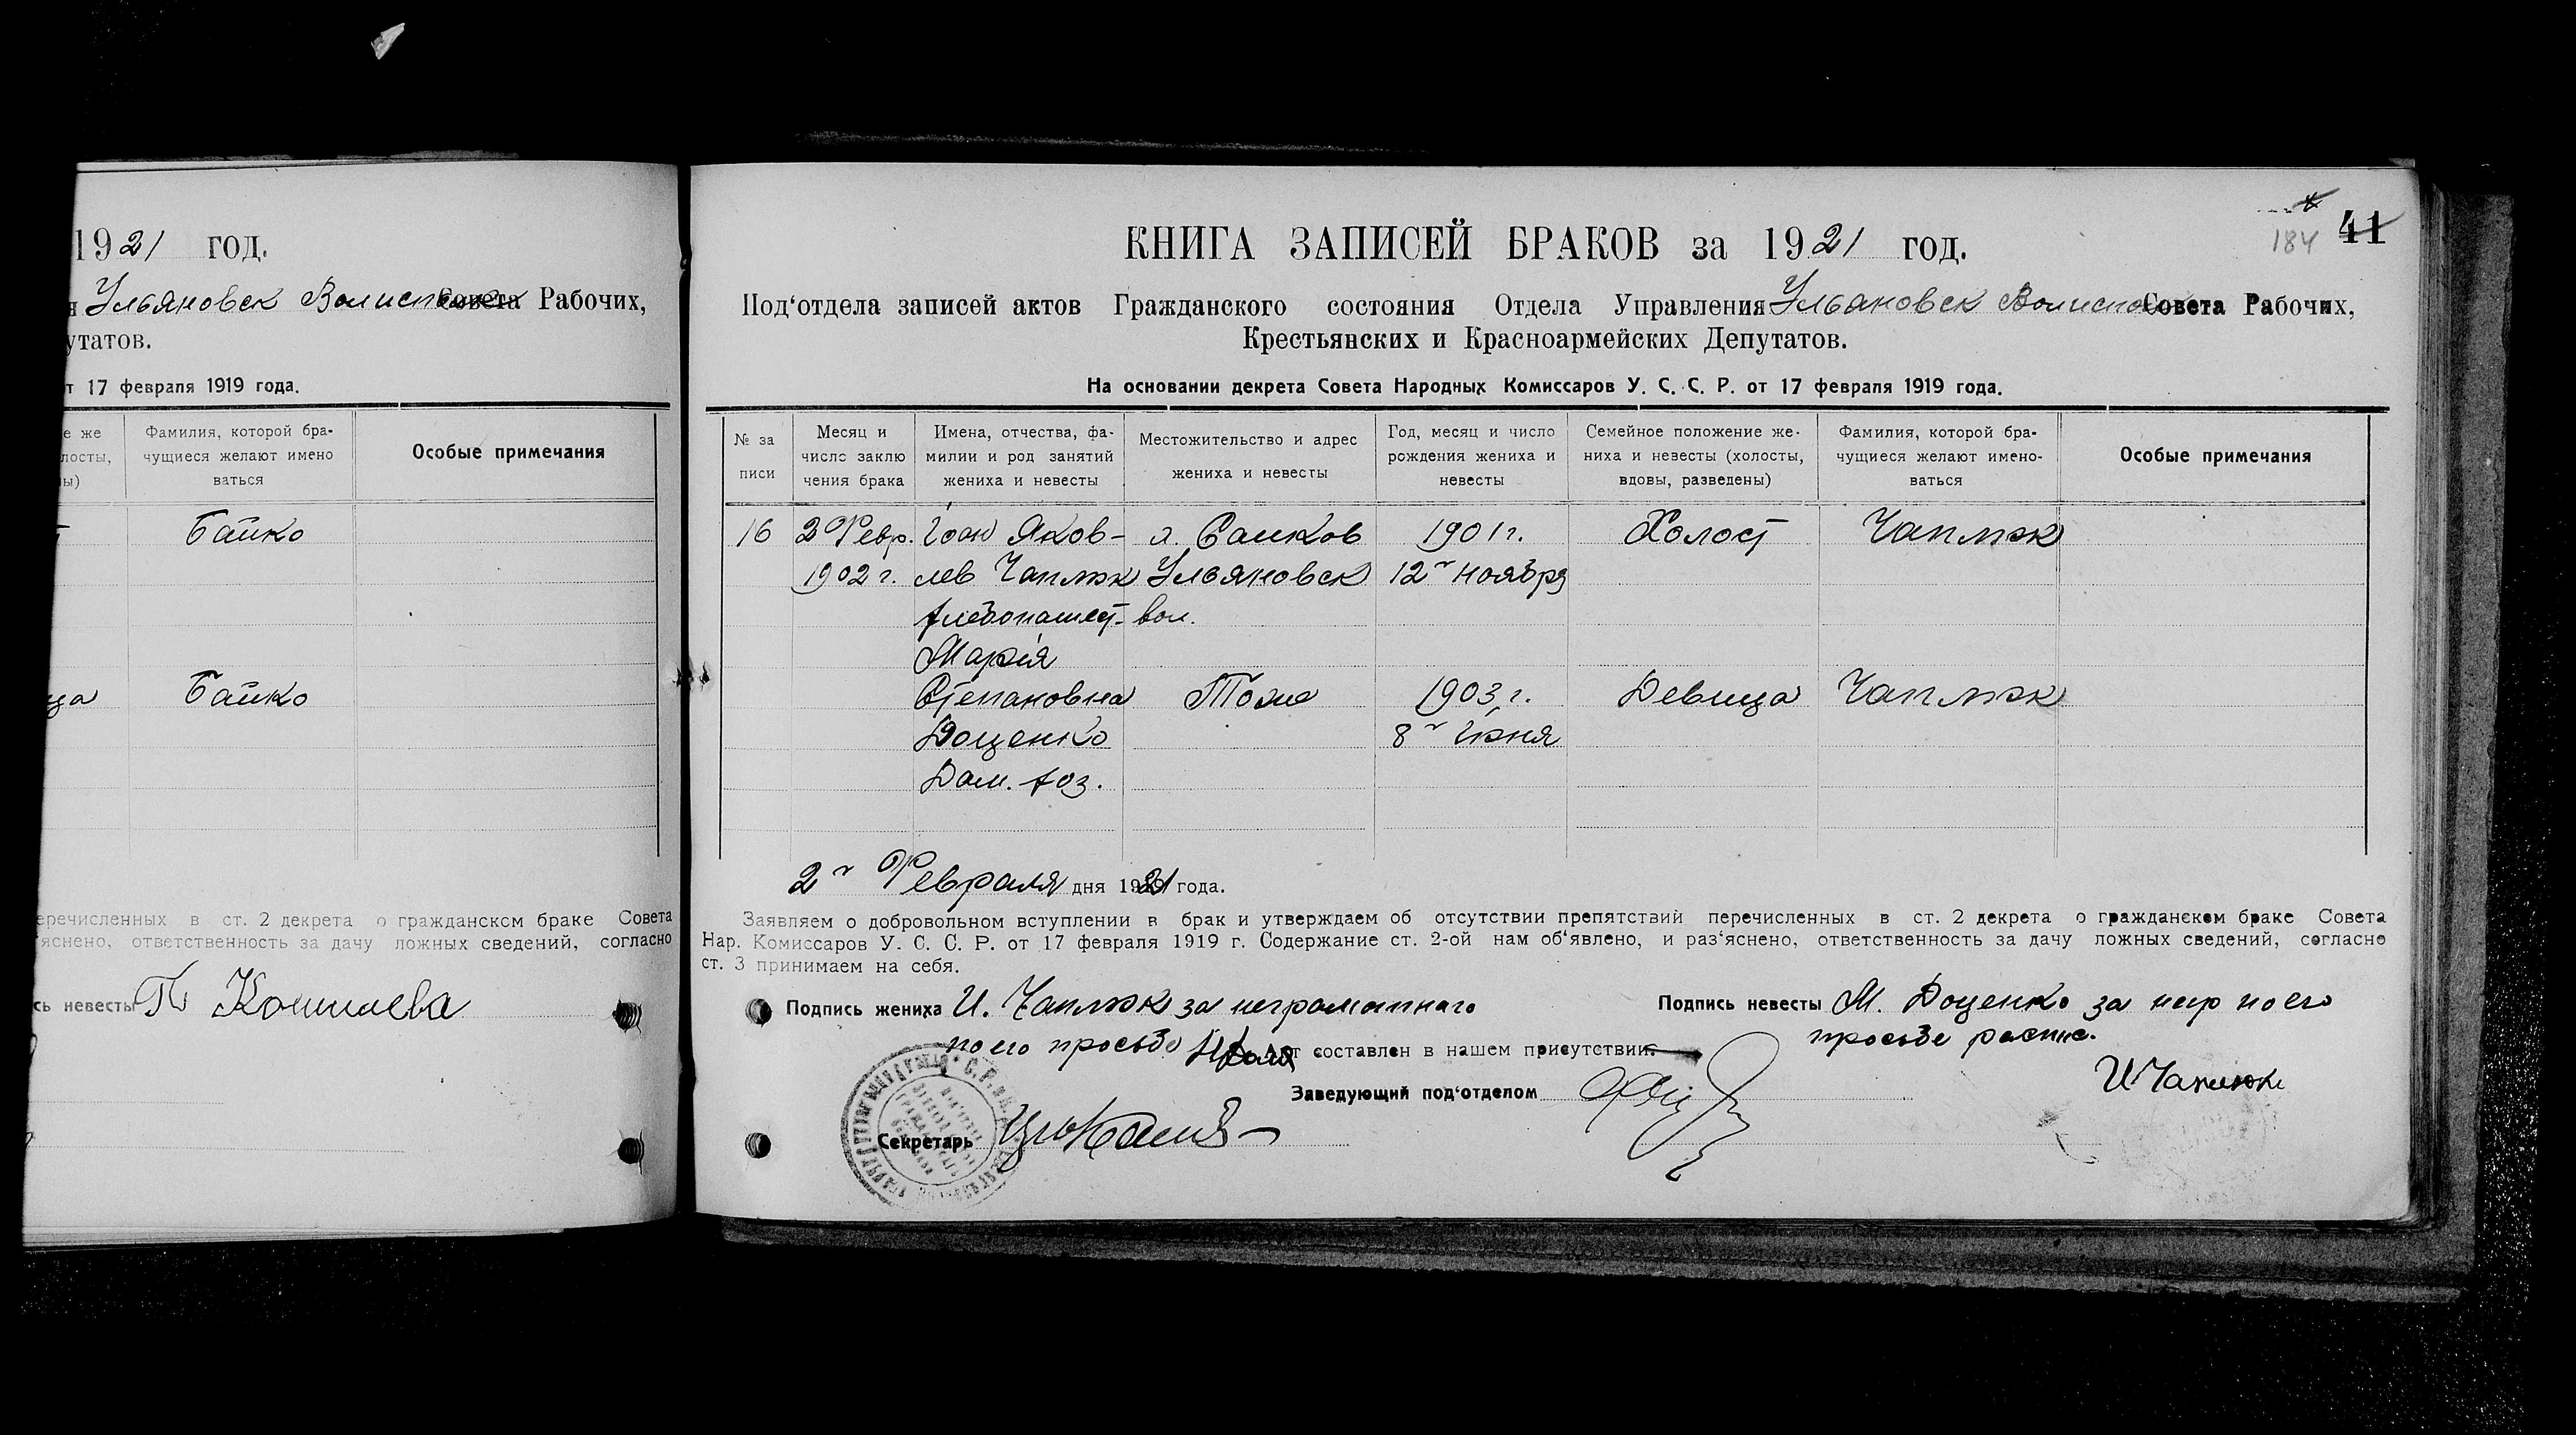 1921 год.
Ульяновск Волисп Совета Рабочих,
утатов.
т 17 февраля 1919 года.
е же
лосты,
ы)
Фамилия, которой бра-
чущиеся желают имено
ваться
Особые примечания
Байко
ца Байко
еречисленных в ст. 2 декрета о гражданском браке Совета
яснено, ответственность за дачу ложных сведений, согласно
сь невесты
41
184
КНИГА ЗАПИСЕЙ БРАКОВ за 1921 год.
Под‘отдела записей актов Гражданского состояния Отдела Управления Ульановск Волисп Совета Рабочих,
Крестьянских и Красноармейских Депутатов.
На основании декрета Совета Народных Комиссаров У. С. С. Р. от 17 февраля 1919 года.
№ за
писи
Месяц и
число заклю
чения брака
Имена, отчества, фа-
милии и род занятий
жениха и невесты
Местожительство и адрес
жениха и невесты
Год, месяц и число
рождения жениха и
невесты
Семейное положение же-
ниха и невесты (холосты,
вдовы, разведены)
Фамилия, которой бра-
чущиеся желают имено-
ваться
Особые примечания
16 2 Февр. Іоан Яков- Санков 1901 г. Холост Чаплюк
1902 г. лев Чаплюк Ульяновск 12го ноября
хлебопашест- вол.
Марія
Степановна Тоже 1903 г. Девица Чаплюк
Доценко 8го Июня
Дом. хоз.
2го Февраля дня 1921 года.
Заявляем о добровольном вступлении в брак и утверждаем об отсутствии препятствий перечисленных в ст. 2 декрета о гражданском браке Совета
Нар. Комиссаров У. С. С. Р. от 17 февраля 1919 г. Содержание ст. 2-ой нам об‘явлено, и раз‘яснено, ответственность за дачу ложных сведений, согласно
ст. 3 принимаем на себя.
Подпись жениха И. Чаплюк за неграматного
по его просьбе
Акт составлен в нашем присутствии:
Подпись невесты М. Доценко за нир по его
просьбе распис.
И Чаплюк
Заведующий под‘отделом
Секретарь